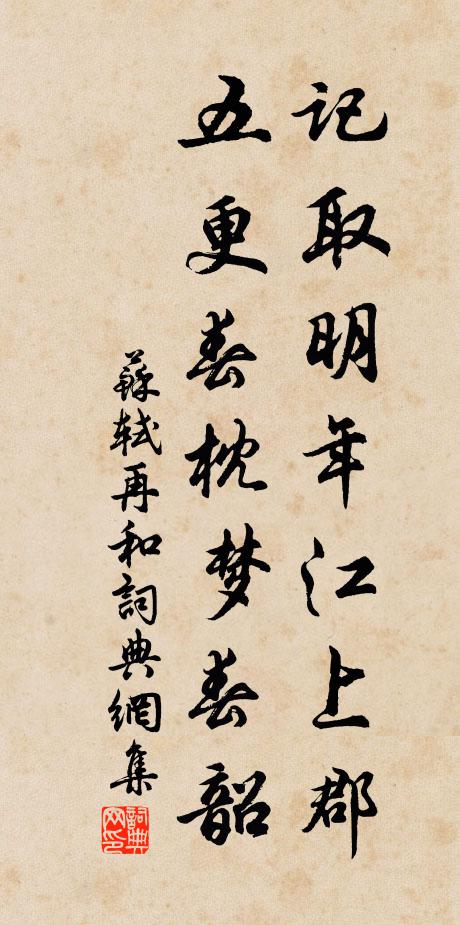 记取明年江上郡
五更春枕梦春韶
蘇軾再和詞典網集
詞典網印